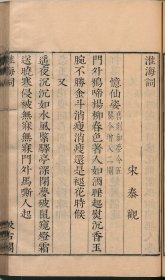 淮海詞
宋 秦觀
憶仙姿
門外鴉啼楊柳春色著人如酒睡起熨沉香玉
腕不勝金斗消瘦消瘦還是褪花時候
又
遙夜沉沉如水風緊驛亭深閉夢破鼠窺燈霜
送曉寒侵被無寐無寐門外馬嘶人起
淮海詞
汲古閣